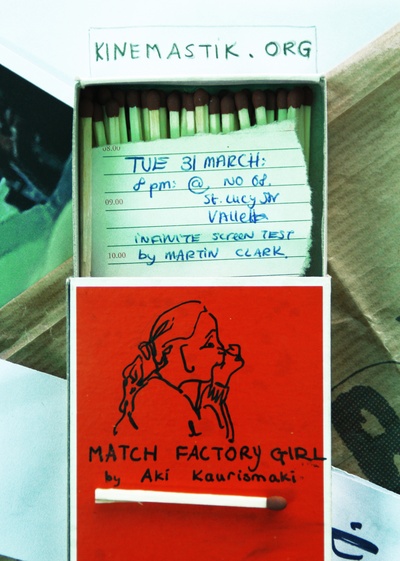 KINEMASTIK.ORG
08.00
TUE 31 MARCH:
8 pm: @, NO 08.
09.00
St. Lucy Str
Valletta
INFINITE SCREEN TEST
10.00 by MARTIN CLARK.
MATCH FACTORY GIRL
by Aki Kaurismaki